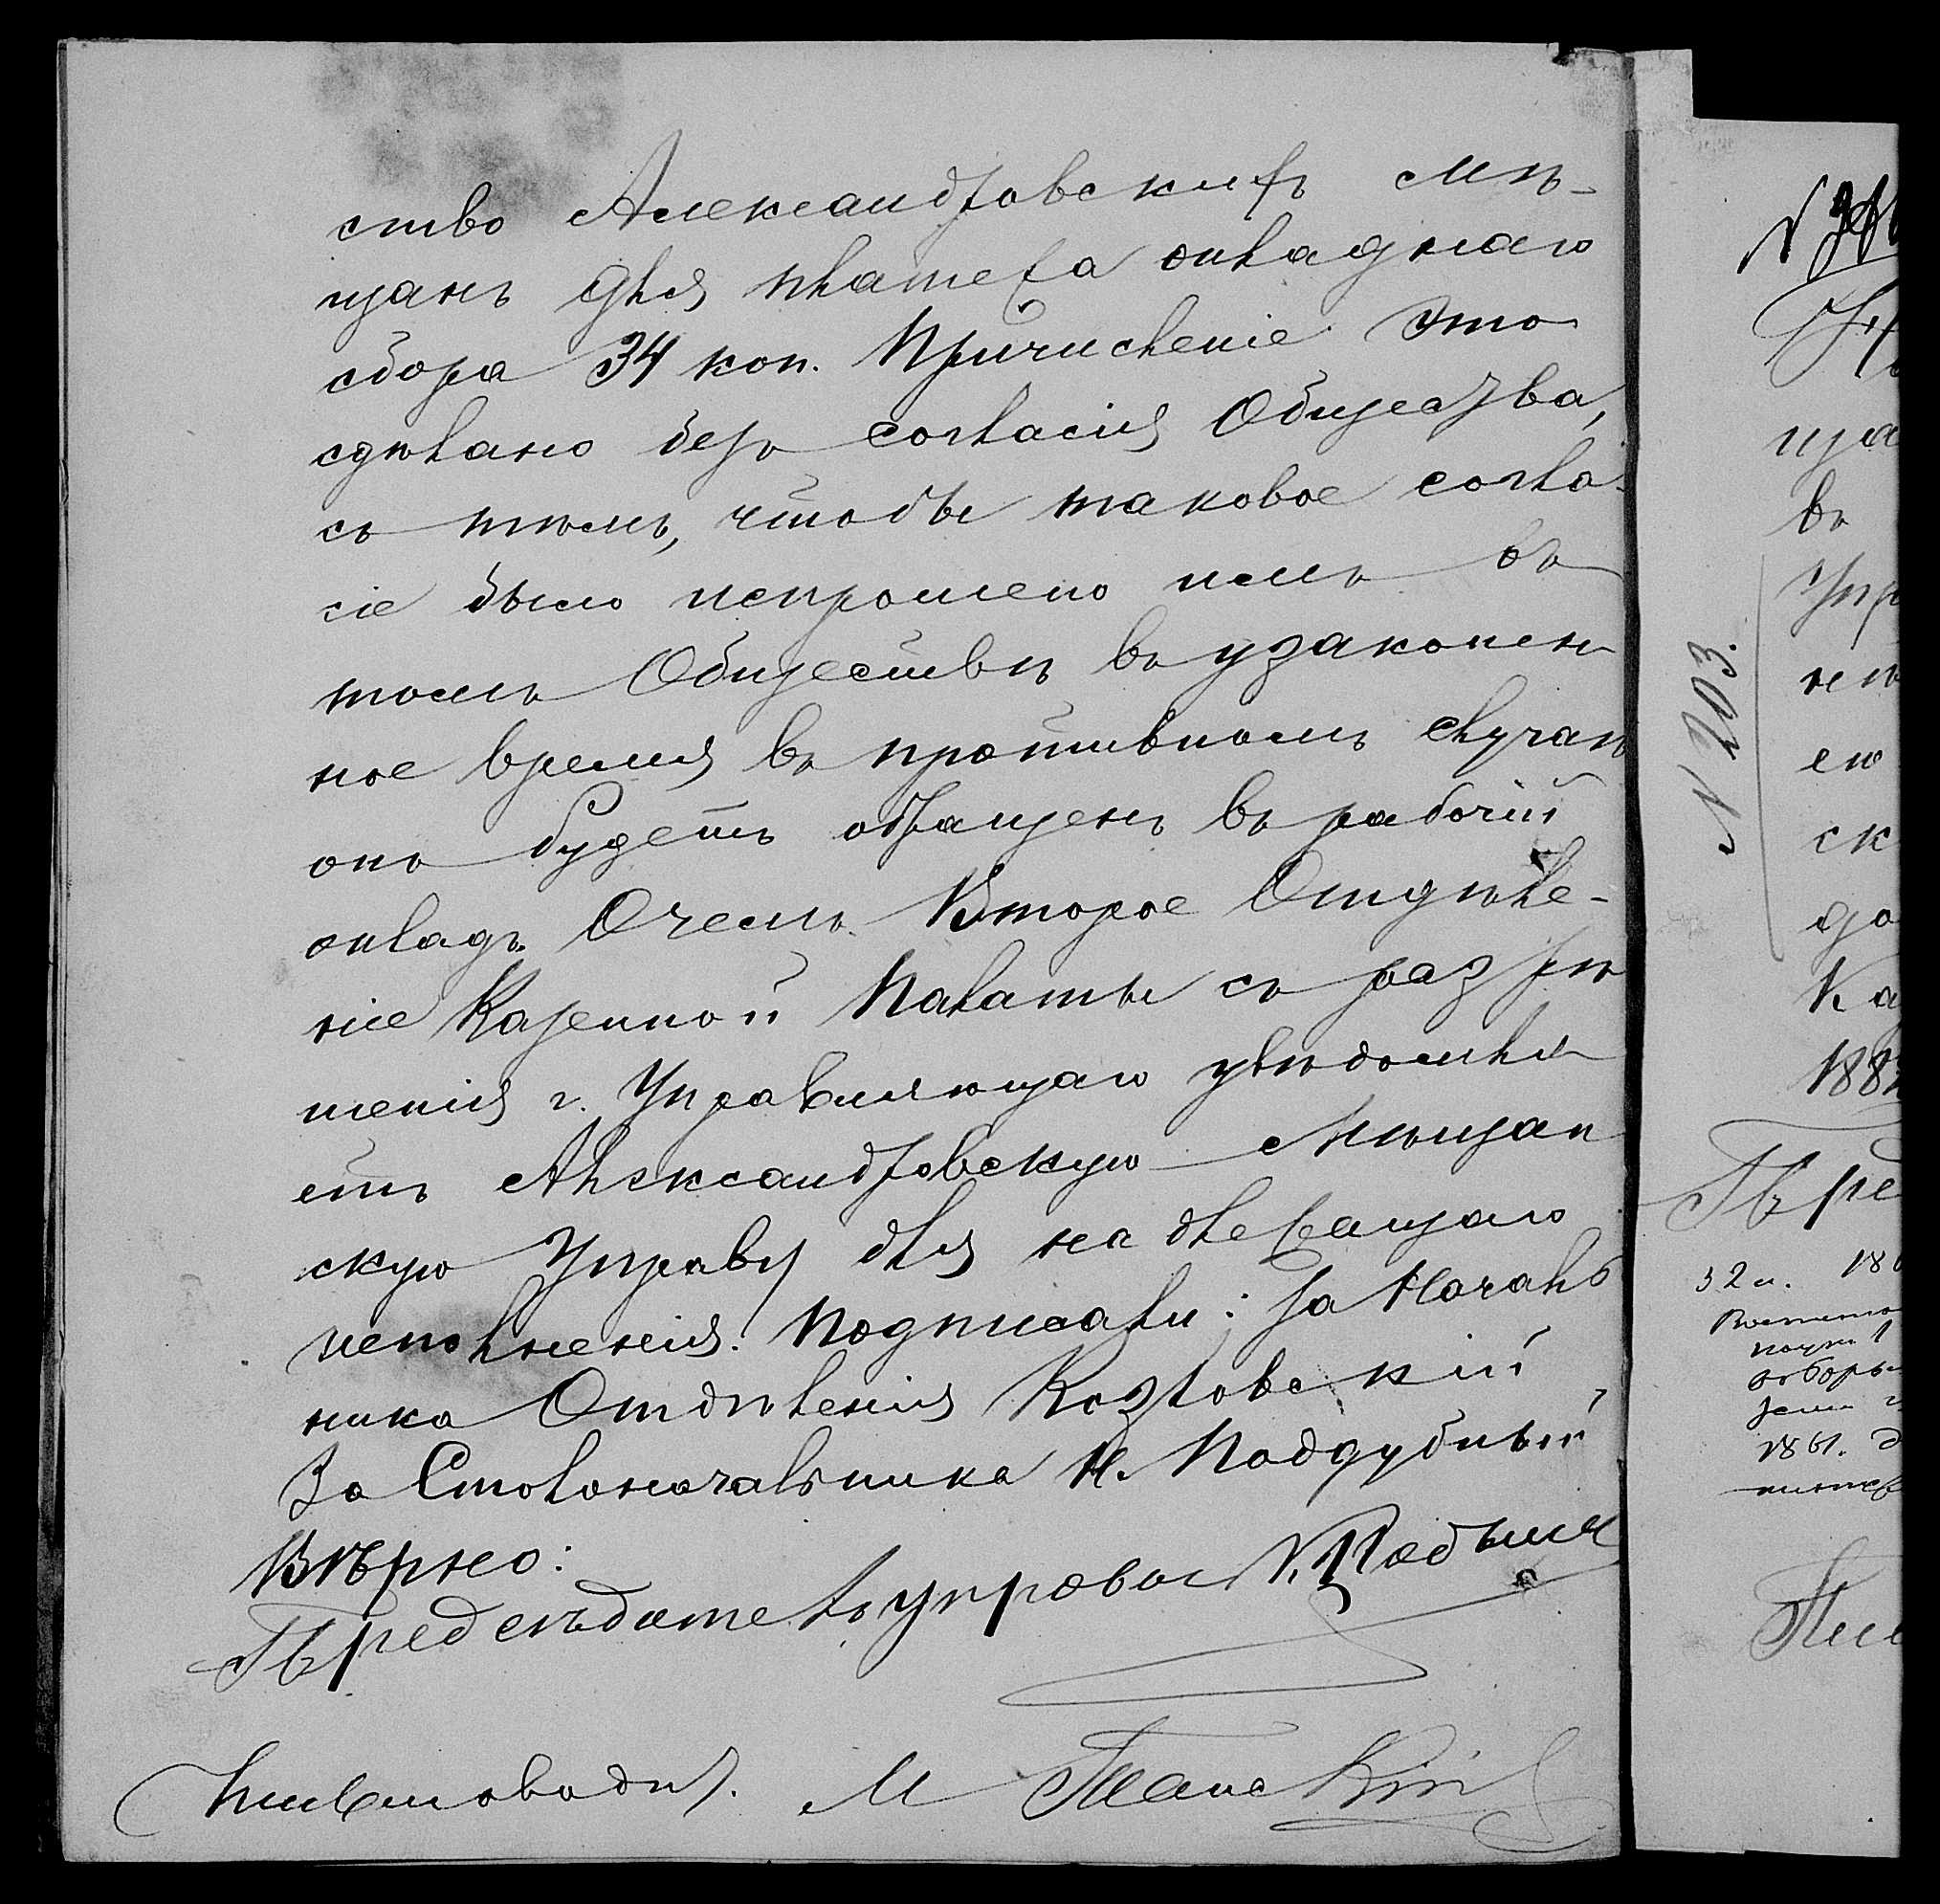 ство Александровскихъ мѣ-
щанъ для платежа окладнаго
сбора 34 коп. Причисленіе это
сдѣлано безъ согласія Общества,
съ тѣмъ, чтобы таковое согла-
сіе было испрошено имъ въ
томъ Обществѣ въ узаконен
ное время въ противномъ случаѣ
онъ будетъ обращенъ въ рабочій
окладъ. О чемъ Второе Отдѣле-
ніе Казенной Палаты съ разрѣ
шенія г. Управляющаго увѣдомля
етъ Александровскую Мѣщан
скую Управу для надлежащаго
исполненія. Подписали: За Началь
ника Отдѣленія Козловскій
За Столоначальника Н. Поддубный
Вѣрно:
Предсѣдатель управы
Письмоводит. М
N 203.
ща
въ
Упр
ею
ск
до
Каз
188
Пред
32 п. 186
1861. д